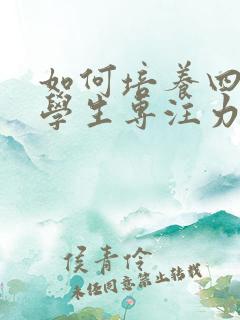 如何培養四
學生專注力
侯青伶
未经同意禁止转载